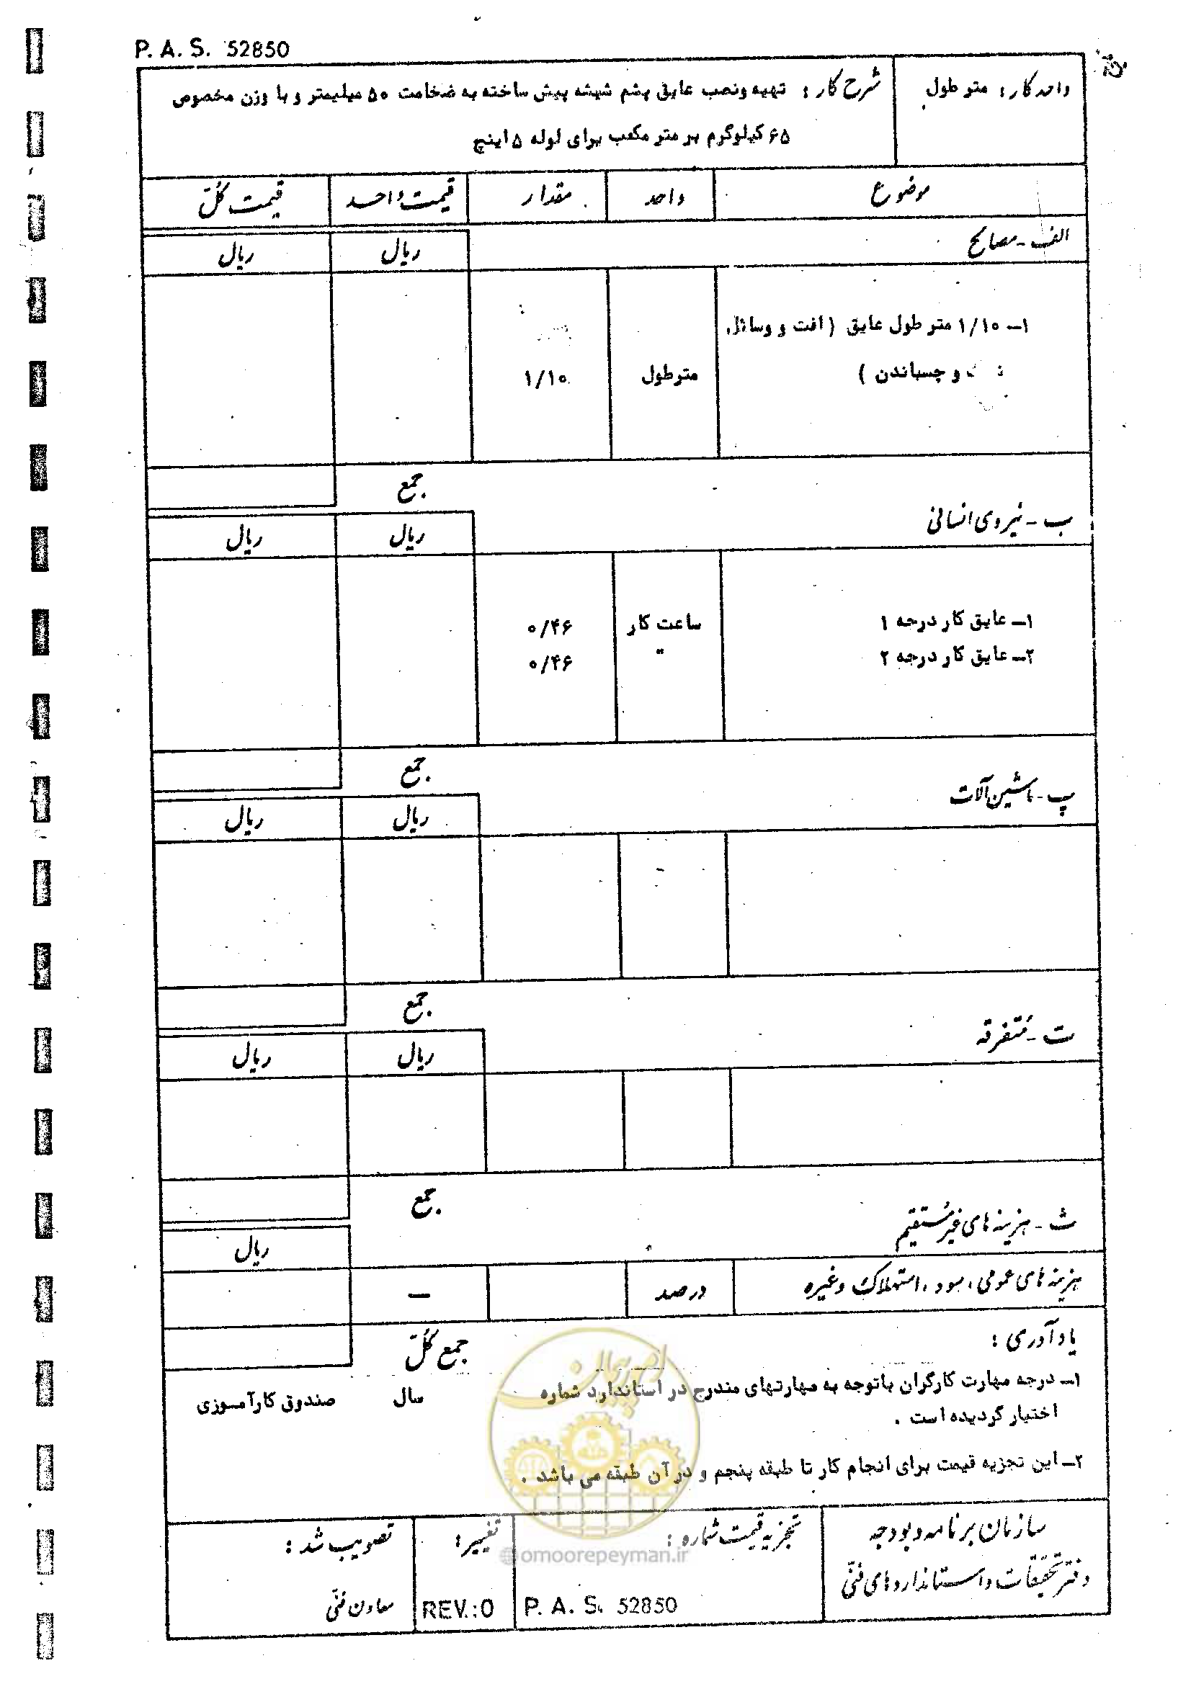 P. A. S. 52850
واحد کار: متر طول
شرح کار: تهیه ونصب عایق پشم شیشه پیش ساخته به ضخامت ۵۰ میلیمتر و با وزن مخصوص
۶۵ کیلوگرم بر متر مکعب برای لوله ۵ اینچ
موضوع واحد مقدار قیمت واحد قیمت کُلّ
الف - مصالح ریال ریال
۱ــ ۱/۱۰ متر طول عایق (افت و وسائل
و چسباندن) مترطول ۱/۱۰
جمع
ب - نیروی انسانی ریال ریال
۱ــ عایق کار درجه ۱ ساعت کار ۰/۴۶
۲ــ عایق کار درجه ۲ " ۰/۴۶
جمع
پ - ماشین آلات ریال ریال
جمع
ت - مُتفرقه ریال ریال
جمع
ث - هزینه های غیرمُستقیم ریال
هزینه های عمومی، سود، استهلاک وغیره درصد —
جمع کُلّ
یادآوری:
۱ــ درجه مهارت کارگران باتوجه به مهارتهای مندرج در استاندارد شماره سال صندوق کارآموزی
اختیار گردیده است .
۲ــ این تجزیه قیمت برای انجام کار تا طبقه پنجم و در آن طبقه می باشد .
امور پیمان
@omoorepeyman.ir
سازمان برنامه و بودجه
دفتر تحقیقات و استانداردهای فنّی
تجزیه قیمت شماره:
P. A. S. 52850
تغییر:
REV.:0
تصویب شد:
معاون فنّی